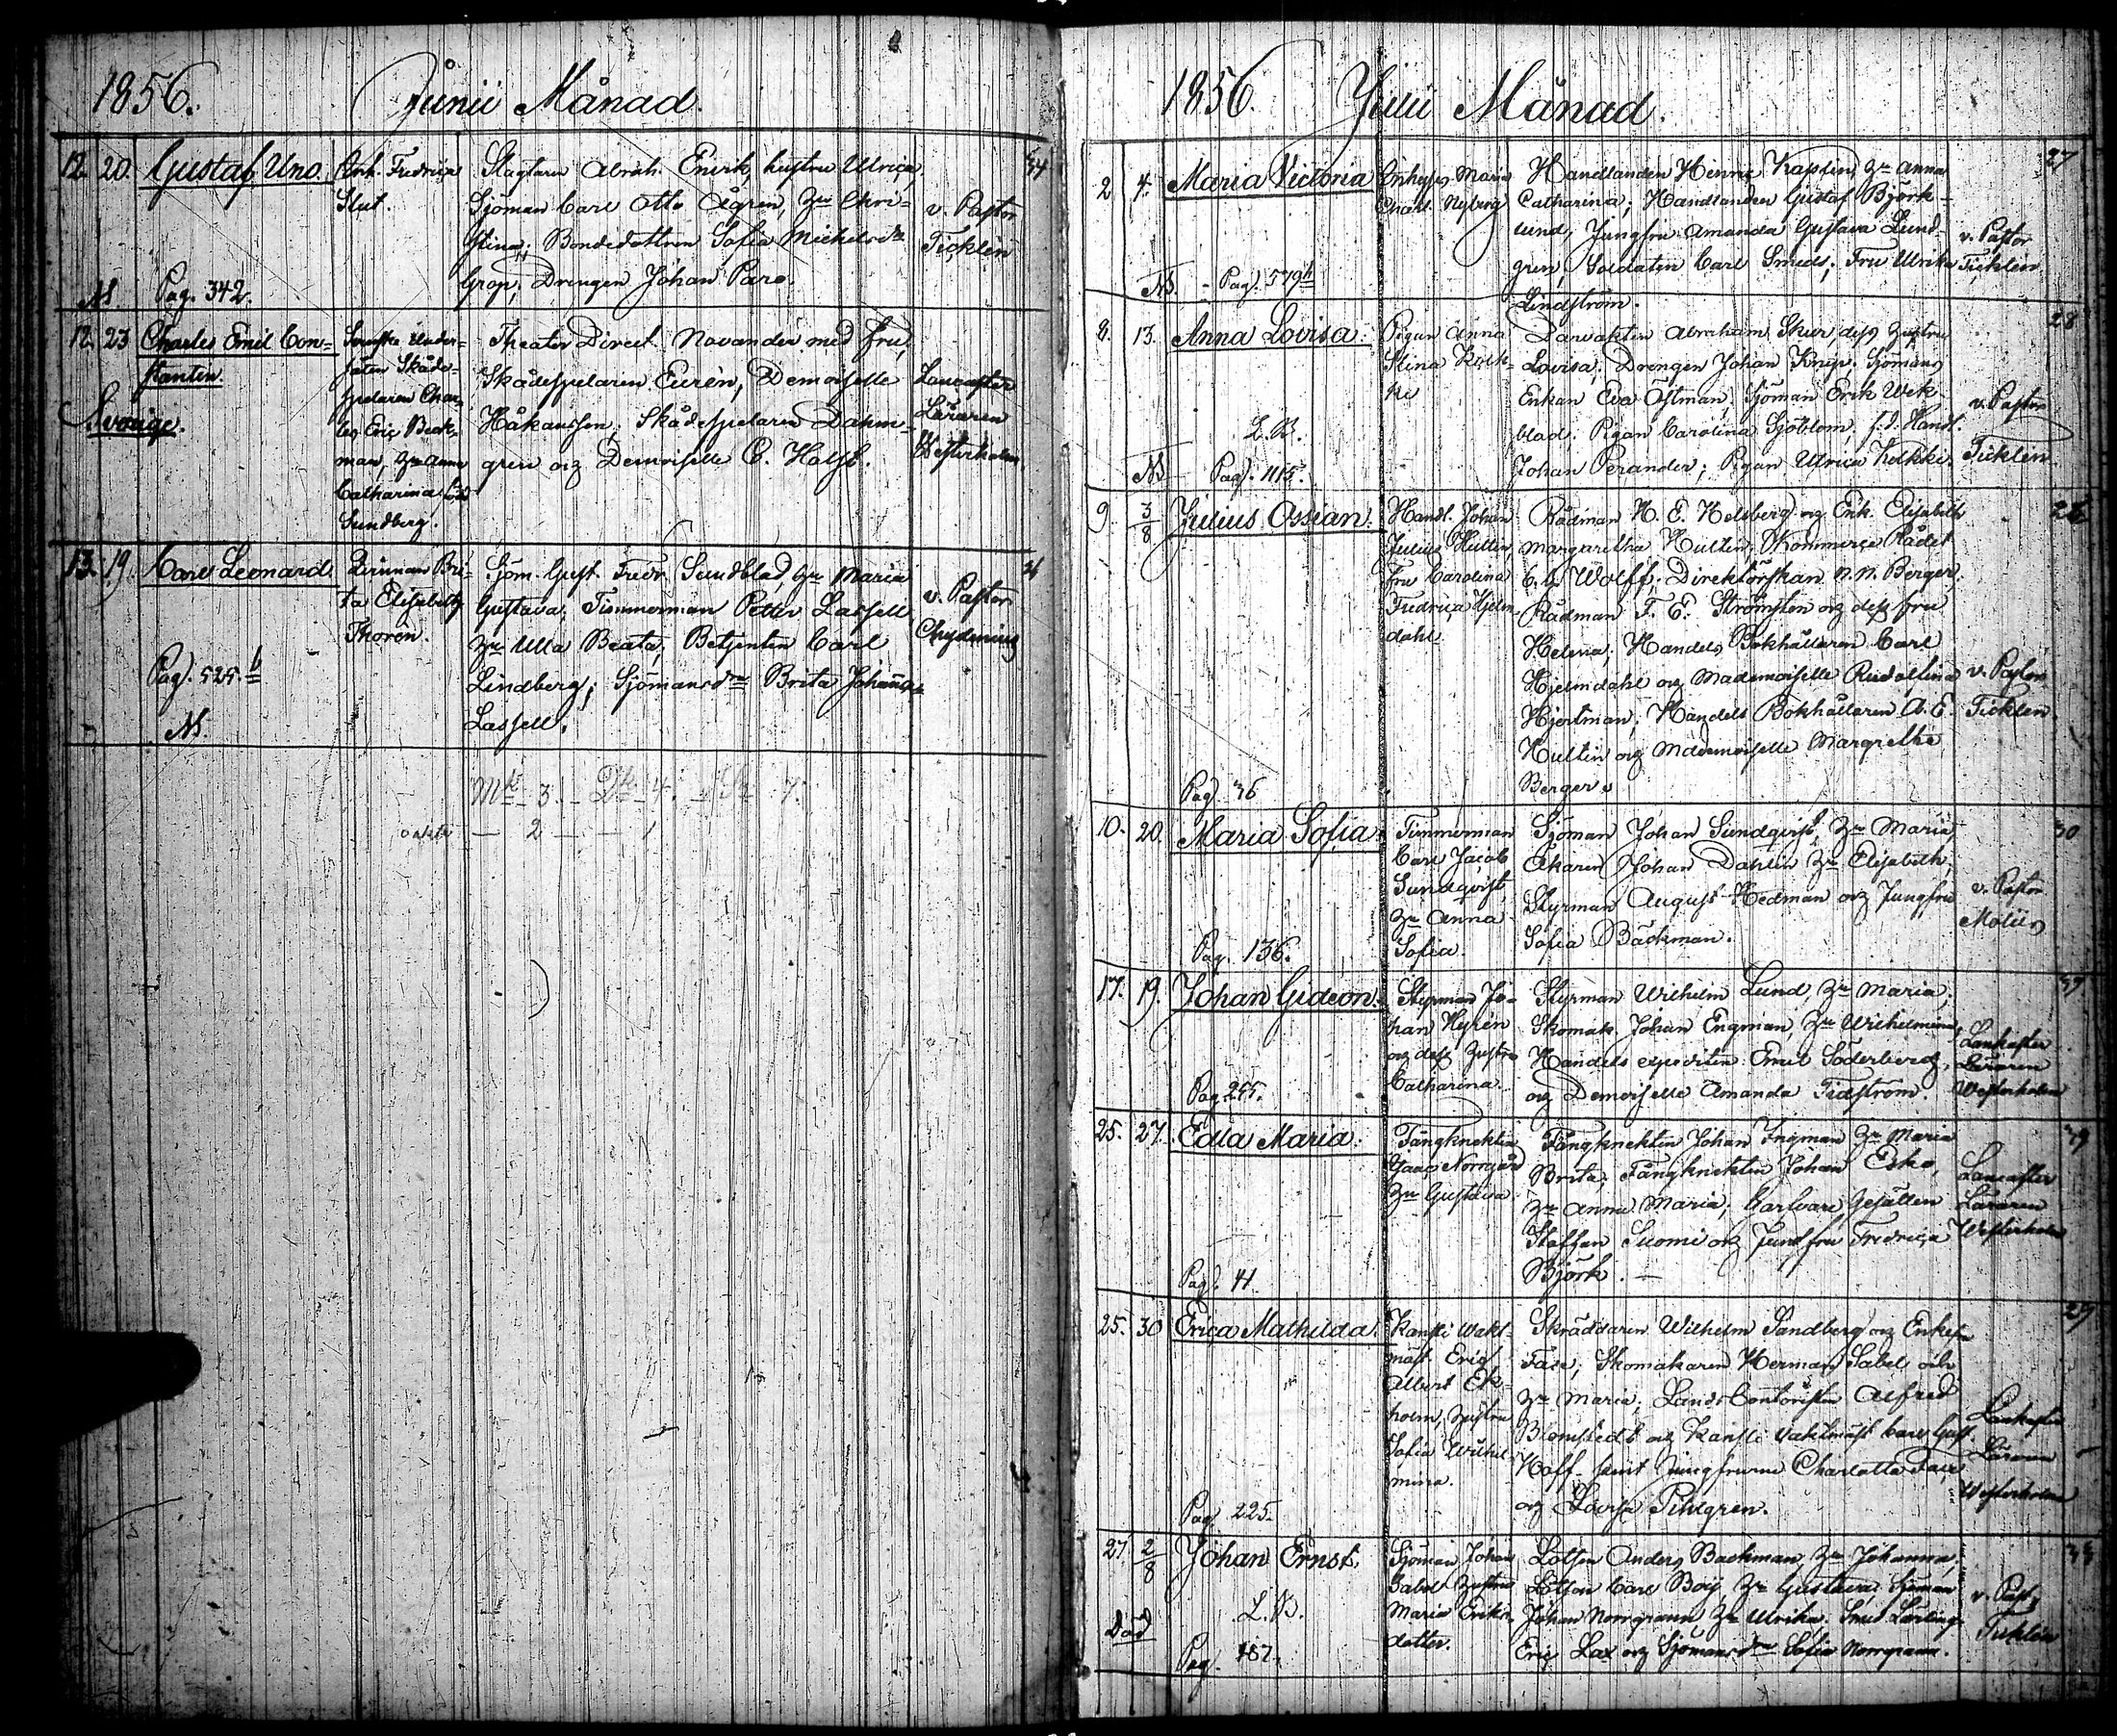 1856. Junii Månad.
12. 20. Gustaf Uno. Enk. Fredrica Slagtaren Abrah. Enerk, hustru Ulrica, 34
Slut. Sjöman Carl Otto Ågren, Chri- v. Pastor
stina; Bondedottren Sofia Michelsdr Ticklén
Grop; Drengen Johan Paro.
Pag. 342.
12. 23 Charles Emil Con- Svenske Under- Theater Direct. Novander med fru,
stantin. såten Skåde- Skådespelaren Eurén, Demoiselle Lancaster
Sverige. spelaren Char- Håkansson, Skådespelaren Dahm- Läraren
les Eric Beck- gren och Demoiselle C. Holst. Westerholm.
man, Anna
Catharina
Sundberg.
13. 19. Carl Leonard Bri- Sjöm. Gust. Fredr. Sundblad, Maria
ta Elisabeth Gustava; Timmerman Petter Lassell, v. Pastor
Thorén. Ulla Beata; Betjenten Carl Chydenius
Pag. 525.b Lindberg; Sjömansdr Brita Johanna
Lassell.
Mk 3. Qk 4. Sa 7.
oäkta — 2 — — 1
1856. Julii Månad.
2 4. Maria Victoria Enkes Maria Handlanden Henric Kaplin, Anna 27
Charl. Nyberg Catharina; Handlanden Gustaf Björk-
lund; Jungfru Amanda Gustava Lund- v. Pastor
gren, Soldaten Carl Smeds; Fru Ulrika Ticklén
Pag. 579b Lindström.
8. 13. Anna Lovisa. Pigan Anna Abraham Skur, dess hustru 28
Stina Lovisa; Drengen Johan Knip. Sjömans
Enkan Eva Östman; Sjöman Erik Wek- v. Pastor
L.B. blad; Pigan Carolina Sjöblom, f.d. Handl.
Pag. 1115. Johan Perander; Pigan Ulrica Ticklén
9. 3/8 Julius Ossian. Handl. Johan Rådman H. E. Helsberg och Enk. Elisabeth
Julius Hultin, Margaretha Hultin; Kommerce Rådet
fru Carolina Wolff; Direktörskan N.N. Berger,
Fredrica Hjelm- Rådman F. E. Strömsten och dess fru
dahl. Helena; Handels Bokhållaren Carl
Hjelmdahl och Mademoiselle Rudolfina v. Pastor
Hjertman; Handels Bokhållaren A. E. Ticklén
Hultin och Mademoiselle Margretha
Pag. 36 Berger.
10. 20. Maria Sofia. Timmerman Sjöman Johan Sundqvist, Maria, 30
Carl Jacob Åkaren Johan Dahlin Elisabeth,
Sundqvist, Styrman August Hedman och Jungfru v. Pastor
Anna Sofia Bäckman. Molin
Pag. 136. Sofia.
17. 19. Johan Gideon. Styrman Jo- Styrman Wilhelm Lund, Maria;
han Hyrén Skomak. Johan Engman, Wilhelmina, Lankaster
och dess hustru Handels expediten Emil Söderberg, Läraren
Pag. 255. Catharina. och Demoiselle Amanda Tidström. Westerholm
25. 27. Edla Maria. Fångknekten Fångknekten Johan Ingman Maria 39
Norrgård Brita; Fångknekten Johan Esko, Lancaster
Gustava. Anna Maria; Garfvare Gesällen Läraren
Staffan Suomi och Jungfru Fredrica Westerholm
Pag. 41. Björk.
25. 30 Erica Mathilda. Kansli Wakt- Skräddaren Wilhelm Sandberg och 29
mäst. Eric Skomakaren Herman Sabel och
Albert Ek- Maria; Lands Contoristen Alfred
holm, hustru Blomstedt och Kansli Vaktmäst. Carl Gust. Lankaster
Sofia Wilhel- Hoff samt Jungfrurne Charlotta Läraren
mina. och Lovisa Pihlgren. Westerholm
Pag. 225.
27. 2/8 Johan Ernst. Sjöman Johan Lotsen Anders Backman, Johanna,
L.B. Sabel hustru Lotsen Carl Boij Gustava. Sjöman v. Past.
Död Maria Eriks- Johan Norrgrann Ulrika. Smed Lärling Ticklén
Pag. 187. dotter. Eric Lax och Sjömansdr Sofia Norrgrann.